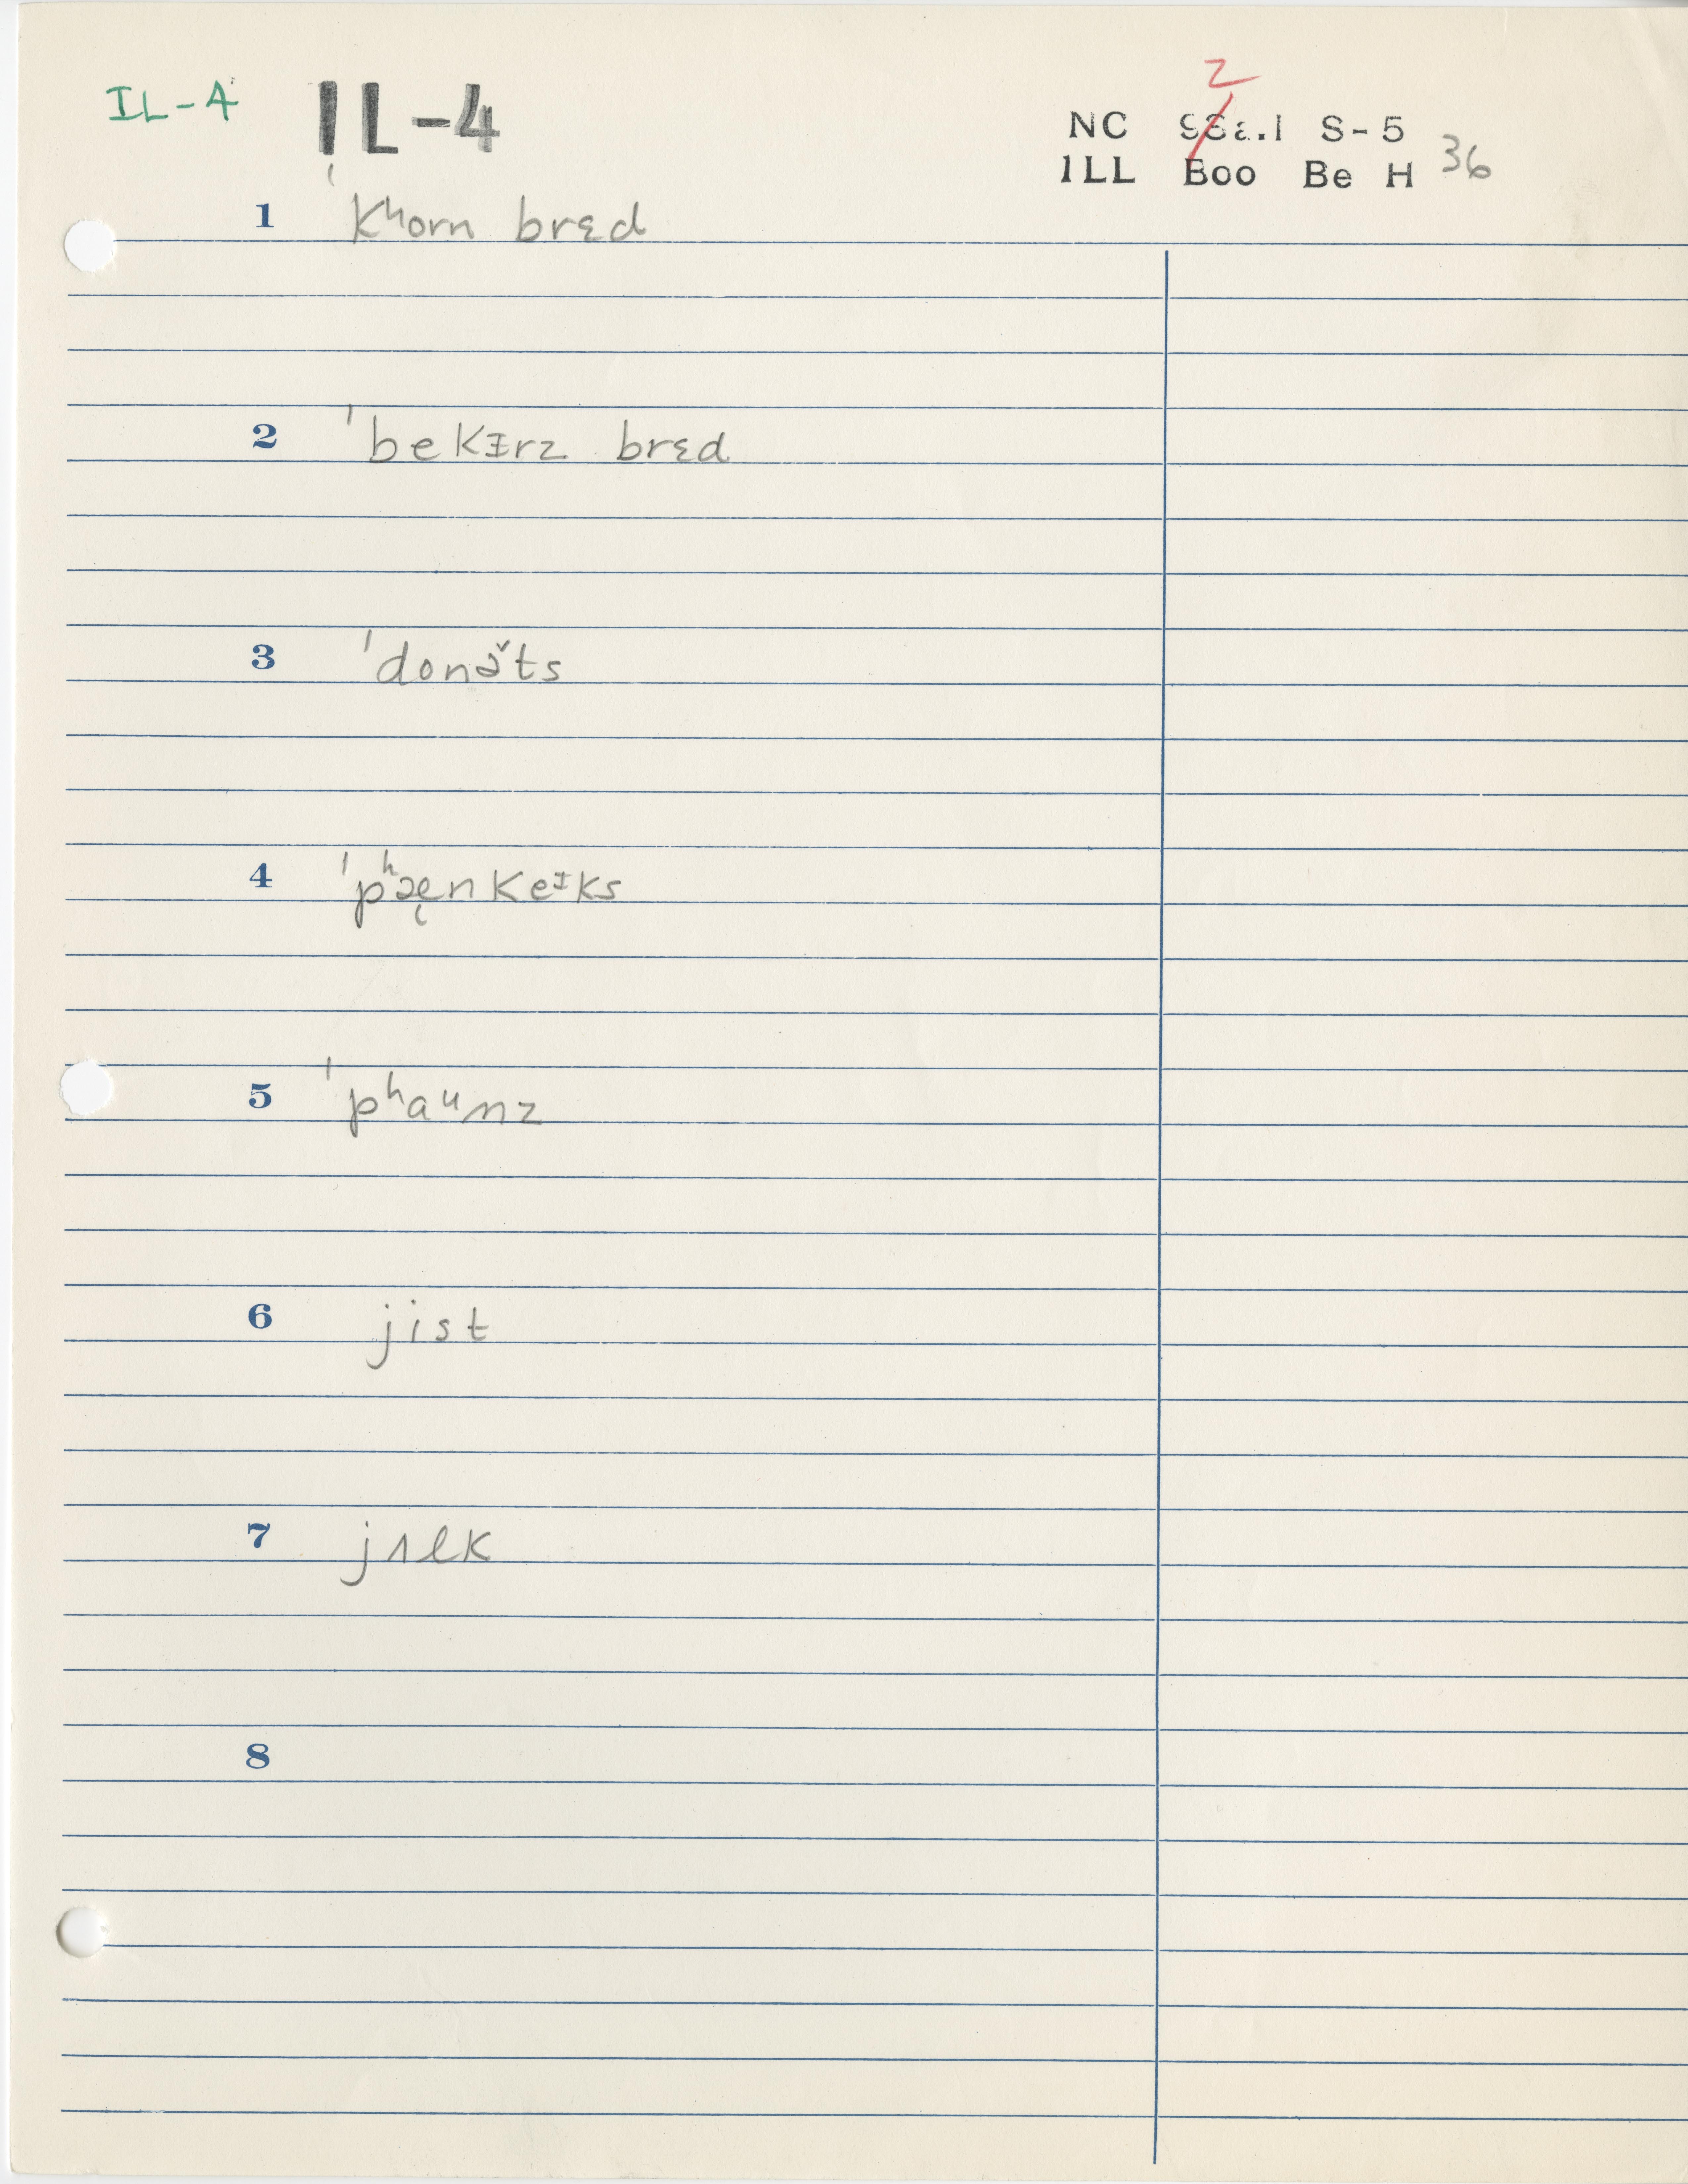 IL-4 IL-4
2
NC 93a.1 S-5
ILL Boo Be H 36
1 ˈkʰorn brɛd
2 ˈbekɪrz brɛd
3 ˈdonə̌ts
4 ˈpʰæ̨nkeᶦks
5 ˈpʰaᵘnz
6 jist
7 jʌlk
8